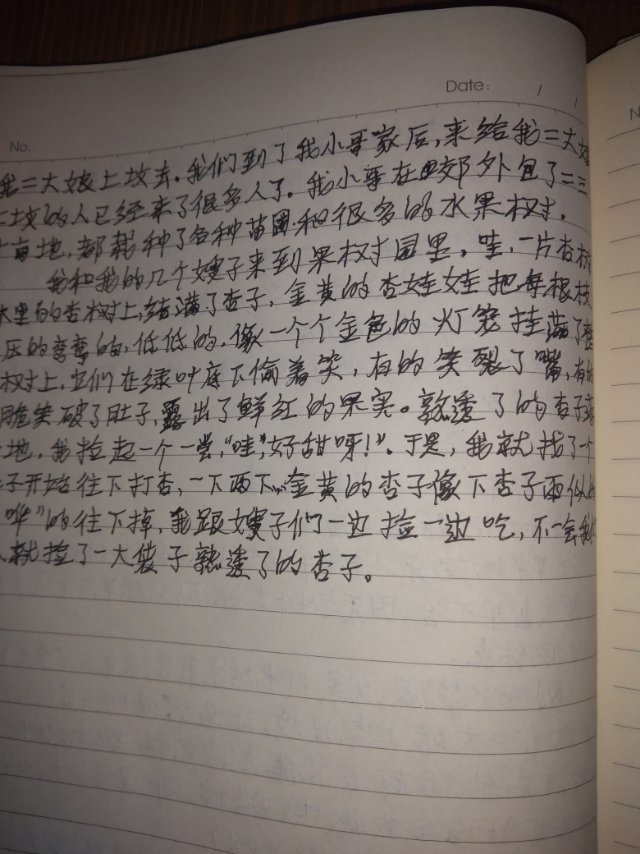 Date: / /
No.
我三大娘上坟去.我们到了我小哥家后,来给我三大娘
上坟的人已经来了很多人了.我小哥在郊外包了二三
十亩地,都栽种了各种苗圃和很多的水果树.
我和我的几个嫂子来到果树园里,哇,一片杏树
林里的杏树上,结满了杏子,金黄的杏娃娃把每根枝
压的弯弯的,低低的.像一个个金色的灯笼挂满了整
树上,它们在绿叶底下偷着笑,有的笑裂了嘴,有的
笑破了肚子,露出了鲜红的果实。熟透了的杏子落
地,我捡起一个一尝,“哇,好甜呀!”.于是,我就找了个
子开始往下打杏,一下两下...金黄的杏子像下杏子雨似的
哗”的往下掉,我跟嫂子们一边捡一边吃,不一会我们
就捡了一大袋子熟透了的杏子。